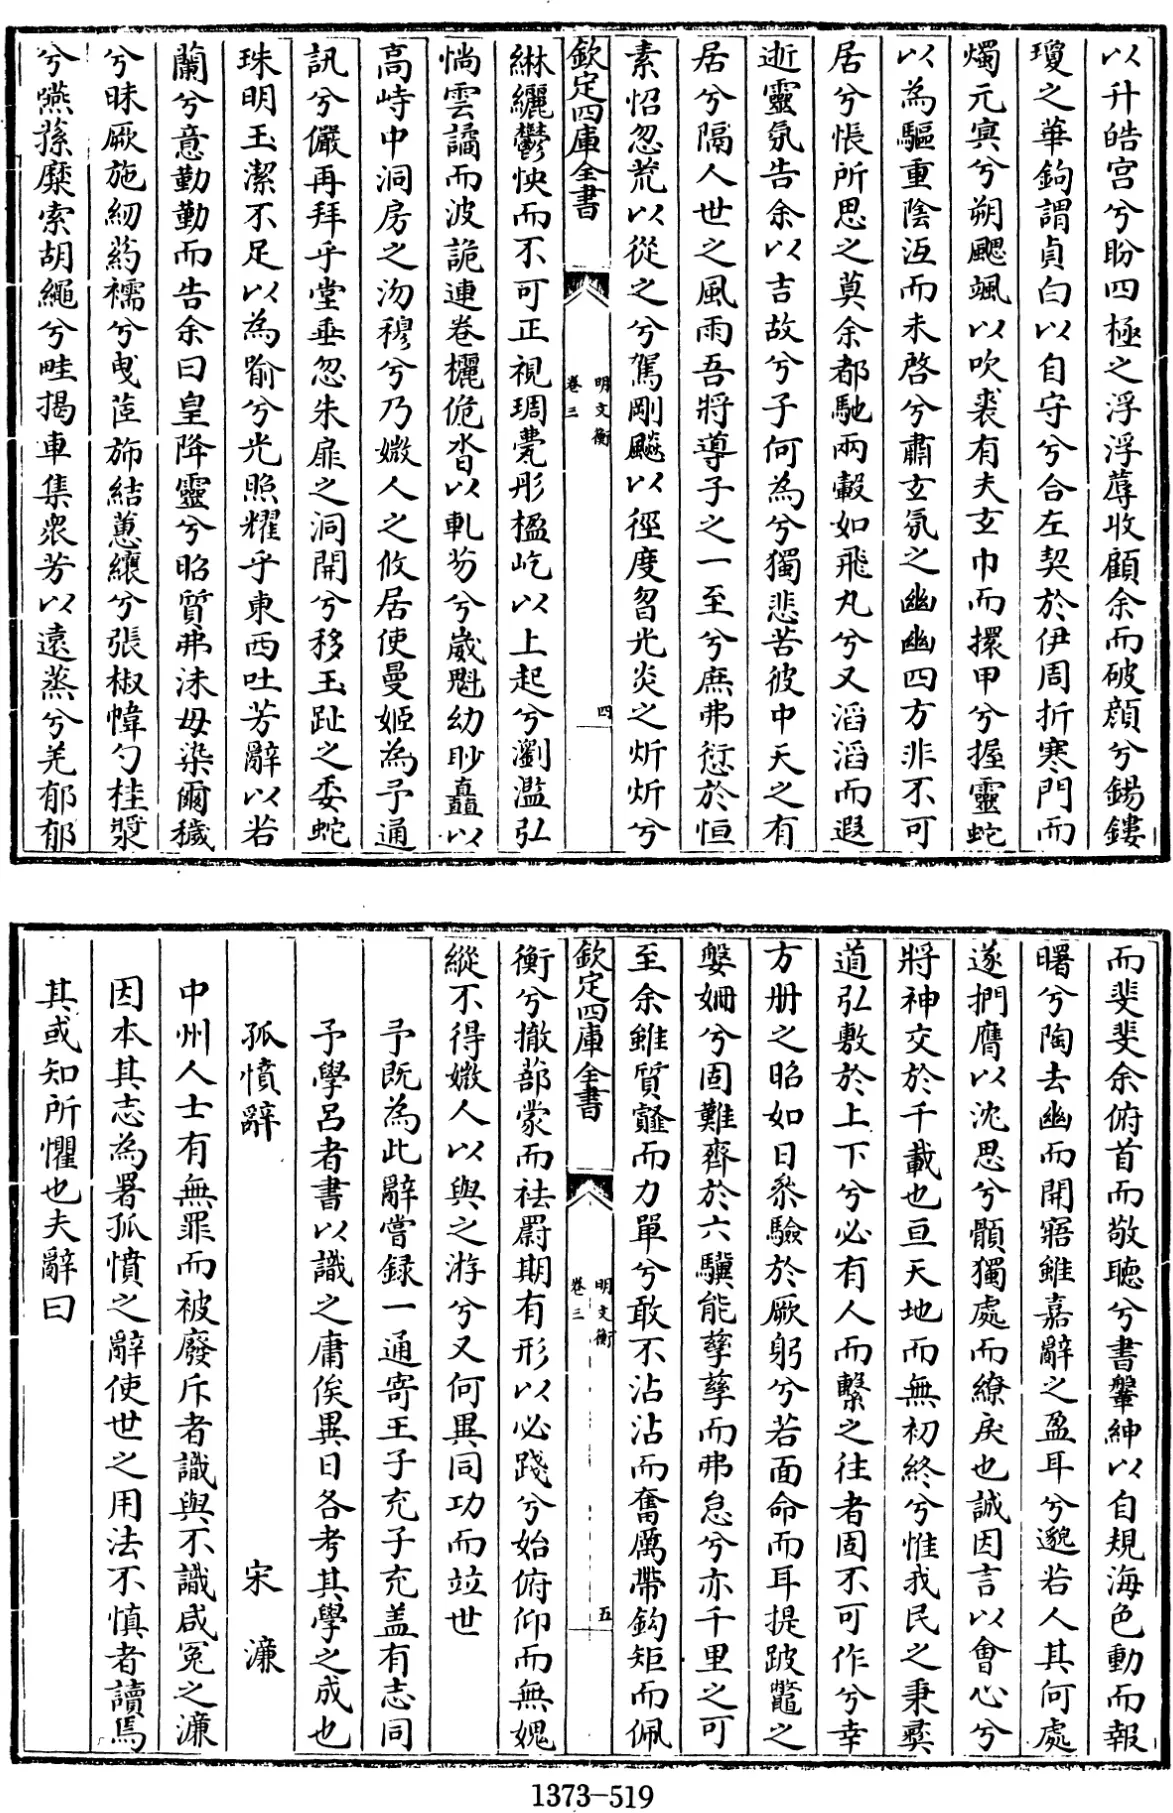 以升皓宮兮盼四極之浮浮蓐收顧余而破顔兮錫鏤
瓊之華鉤謂貞白以自守兮合左契於伊周折寒門而
燭元㝠兮朔颸颯以吹裘有夫玄巾而擐甲兮握靈蛇
以為驅重陰沍而未啓兮肅玄氛之幽幽四方非不可
居兮悵所思之莫余都馳兩轂如飛丸兮又滔滔而遐
逝靈氛告余以吉故兮子何為兮獨悲苦彼中天之有
居兮隔人世之風雨吾將導子之一至兮庶弗愆於恒
素怊忽荒以從之兮駕剛飇以徑度曶光炎之炘炘兮
欽定四庫全書
明文衡
卷三
四
綝纚鬱怏而不可正視琱甍彤楹屹以上起兮瀏濫弘
惝雲譎而波詭連卷欐佹沓以軋芴兮嵗魁幼眇矗以
高峙中洞房之沕穆兮乃媺人之攸居使曼姬為予通
訊兮儼再拜乎堂垂忽朱扉之洞開兮移玉趾之委蛇
珠明玉潔不足以為喻兮光照耀乎東西吐芳辭以若
蘭兮意勤勤而告余曰皇降靈兮昭質弗沬毋染爾穢
兮昧厥施紉葯襦兮曳茝斾結蕙纕兮張椒幃勺桂漿
兮嚥蓀糜索胡繩兮畦揭車集衆芳以遠蒸兮羌郁郁
而斐斐余俯首而敬聽兮書鞶紳以自規海色動而報
曙兮陶去幽而開寤雖嘉辭之盈耳兮邈若人其何處
遂捫膺以沈思兮顝獨處而繚戾也誠因言以會心兮
將神交於千載也亘天地而無初終兮惟我民之秉彛
道弘敷於上下兮必有人而繫之往者固不可作兮幸
方册之昭如日叅驗於厥躬兮若面命而耳提跛鼈之
媻姍兮固難齊於六驥能孳孳而弗怠兮亦千里之可
至余雖質蹇而力單兮敢不沾沾而奮厲帶鈎矩而佩
欽定四庫全書
明文衡
卷三
五
衡兮撤蔀蒙而祛罻期有形以必踐兮始俯仰而無媿
縱不得媺人以與之游兮又何異同功而竝世
予既為此辭嘗録一通寄王子充子充盖有志同
予學呂者書以識之庸俟異日各考其學之成也
孤憤辭 宋濓
中州人士有無罪而被廢斥者識與不識咸寃之濓
因本其志為署孤憤之辭使世之用法不慎者讀焉
其或知所懼也夫辭曰
1373-519